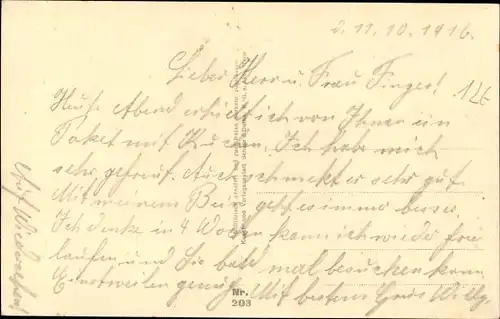 d. 11.10.1916.
Lieber Herr u. Frau Finger!
126
Heute Abend erhielt ich von Ihnen ein
Paket mit Kuchen. Ich habe mich
sehr gefreut. Auch schmekt er sehr gut.
Mit meinem Bein geht es immer besser.
Ich denke in 4 Wochen kann ich wieder frei
laufen und Sie bald mal besuchen kann.
Einstweilen genügt. Mit bestem Gruß Willy.
Auf Wiedersehen
Nr.
203